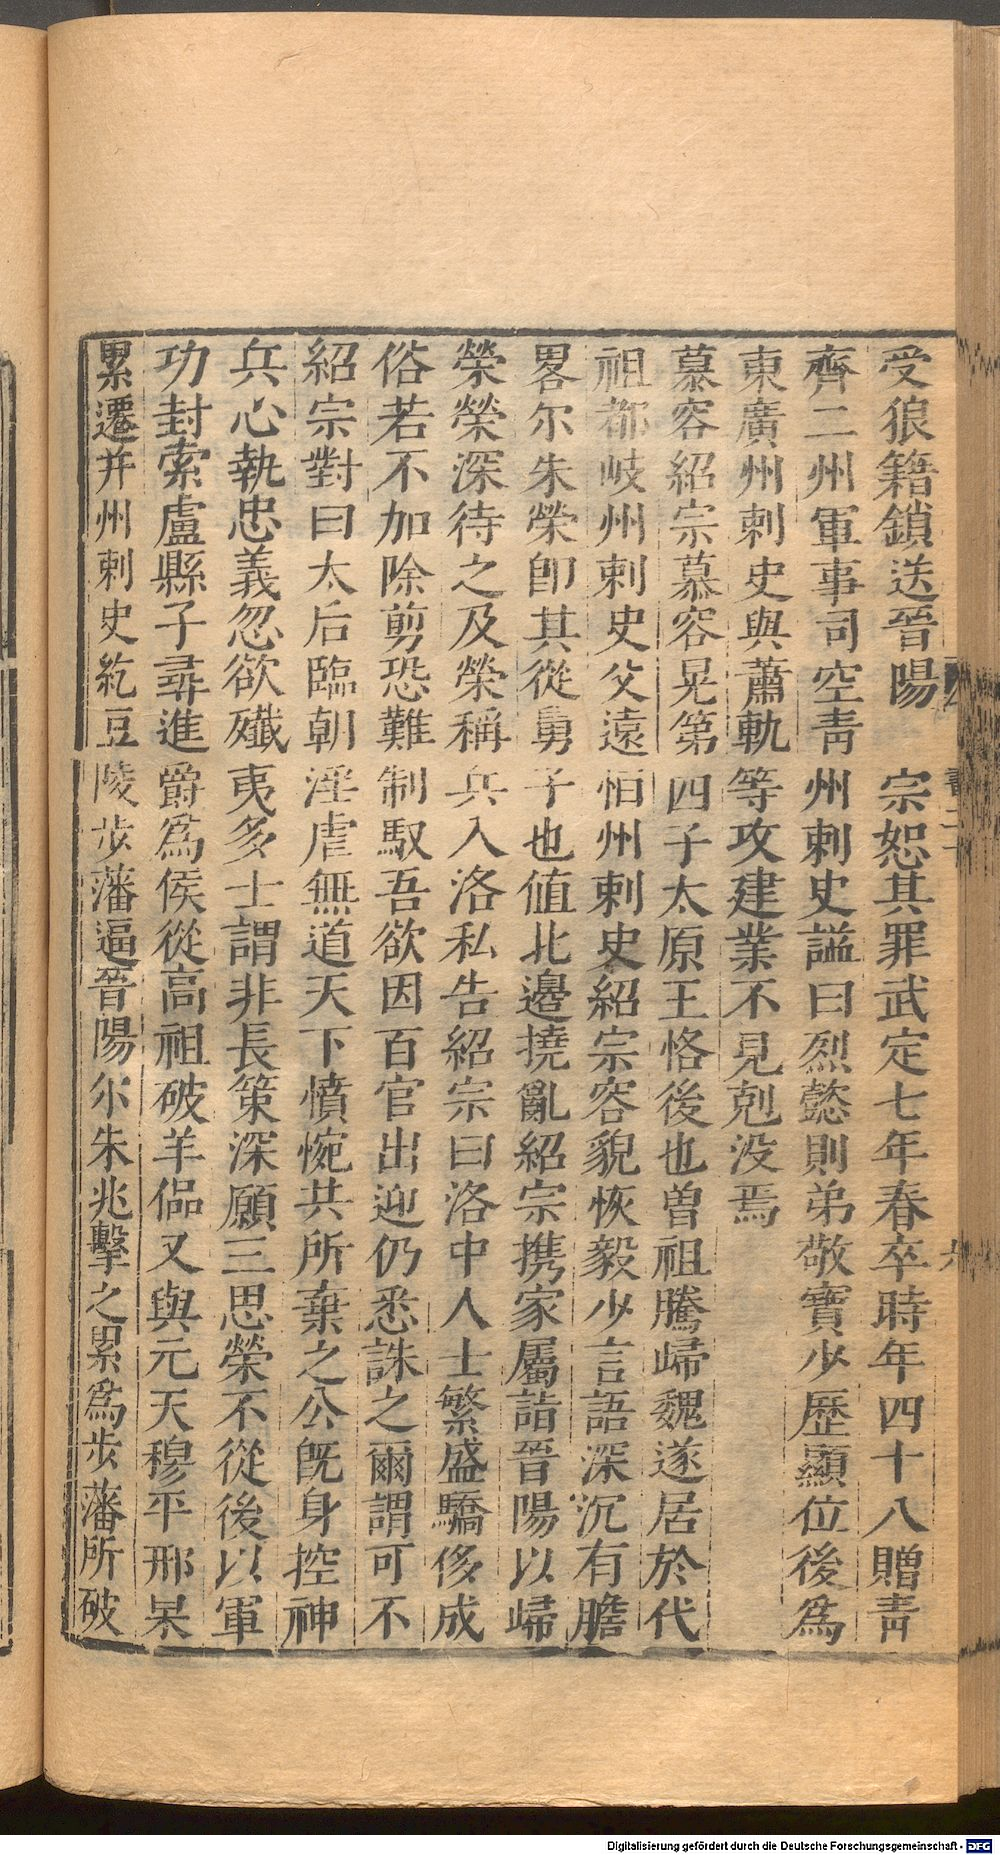 受狼籍鎖送晉陽　宗恕其罪武定七年春卒時年四十八贈青
齊二州軍事司空青州刺史諡曰烈懿則弟敬寶少歷顯位後爲
東廣州刺史與蕭軌等攻建業不見剋没焉
慕容紹宗慕容晃第四子太原王恪後也曾祖騰歸魏遂居於代
祖都岐州刺史父遠恒州刺史紹宗容貌恢毅少言語深沉有膽
畧尔朱榮卽其從舅子也値北邊撓亂紹宗携家屬詣晉陽以歸
榮榮深待之及榮稱兵入洛私告紹宗曰洛中人士繁盛驕侈成
俗若不加除剪恐難制馭吾欲因百官出迎仍悉誅之爾謂可不
紹宗對曰太后臨朝淫虐無道天下憤惋共所棄之公旣身控神
兵心執忠義忽欲殲夷多士謂非長策深願三思榮不從後以軍
功封索盧縣子尋進爵爲侯從高祖破羊侃又與元天穆平邢杲
累遷并州刺史紇豆陵步藩逼晉陽尔朱兆擊之累爲步藩所破
Digitalisierung gefördert durch die Deutsche Forschungsgemeinschaft - DFG